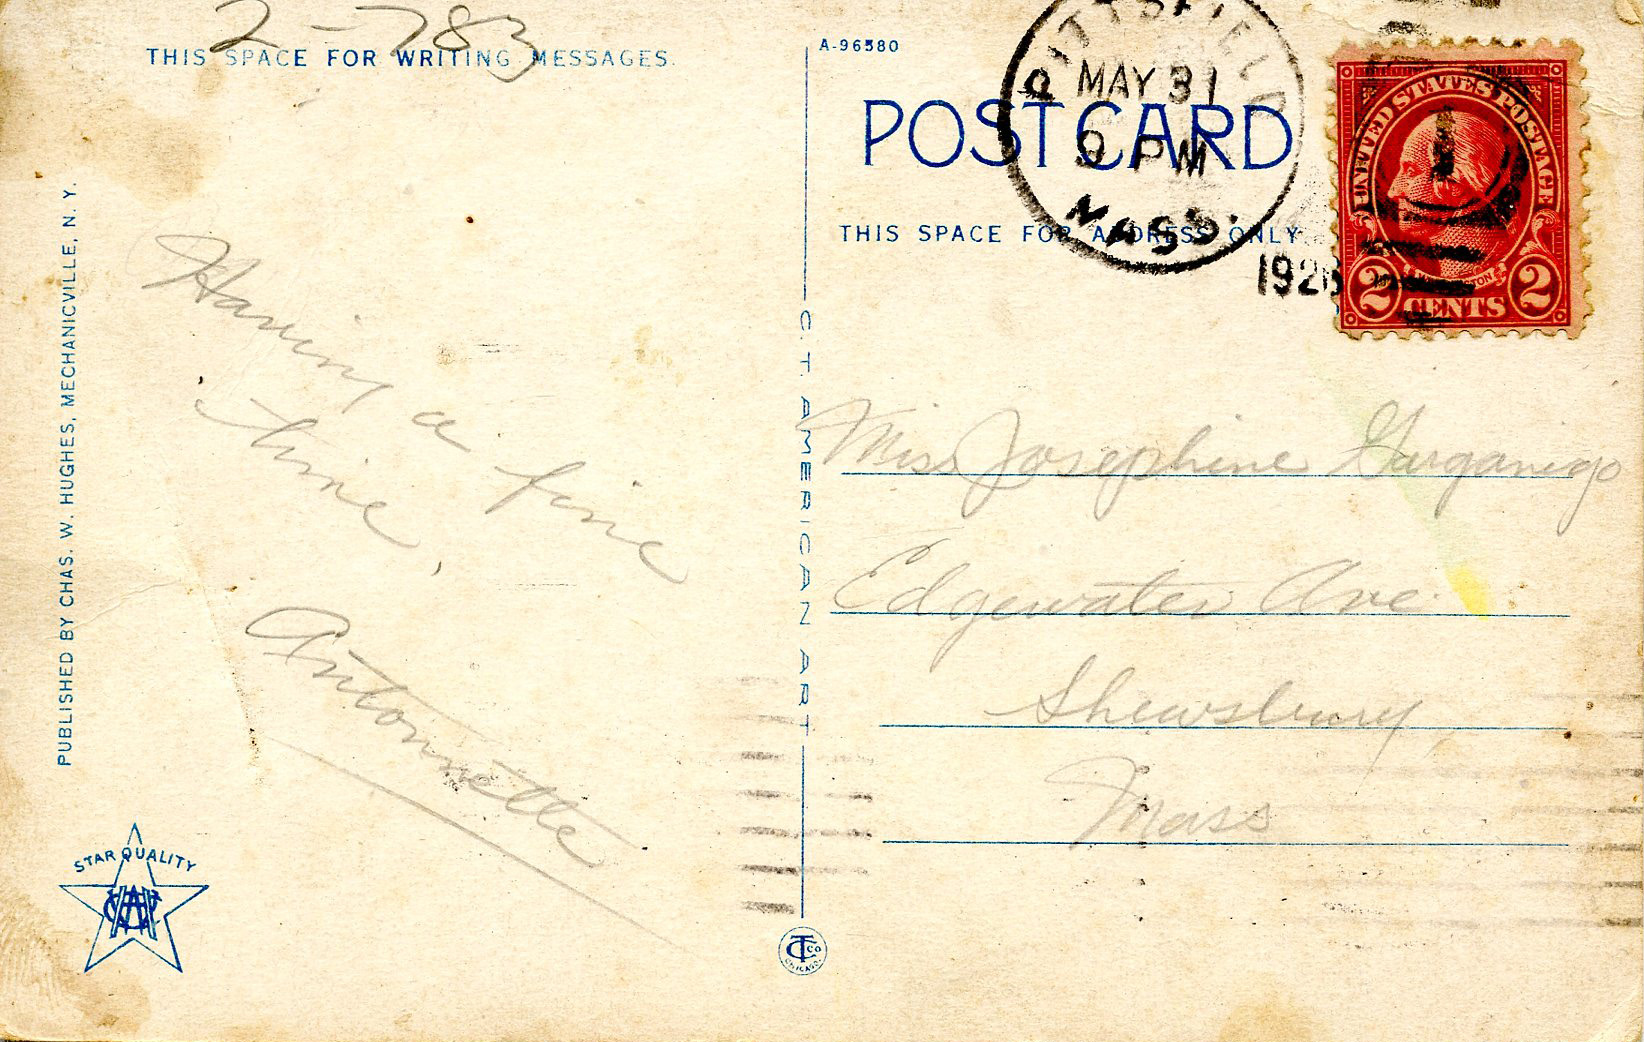 2-783
THIS SPACE FOR WRITING MESSAGES.
A-96580
PITTSFIELD
MAY 31
9 PM
MASS.
1926
POST CARD
THIS SPACE FOR ADDRESS ONLY
UNITED STATES POSTAGE
2 CENTS 2
PUBLISHED BY CHAS. W. HUGHES, MECHANICVILLE, N. Y.
Having a fine
time,
Antonnette
C.T. AMERICAN ART
Miss Josephine Garganigo
Edgewater Ave.
Shewsbury,
Mass
STAR QUALITY
CTCO
CHICAGO